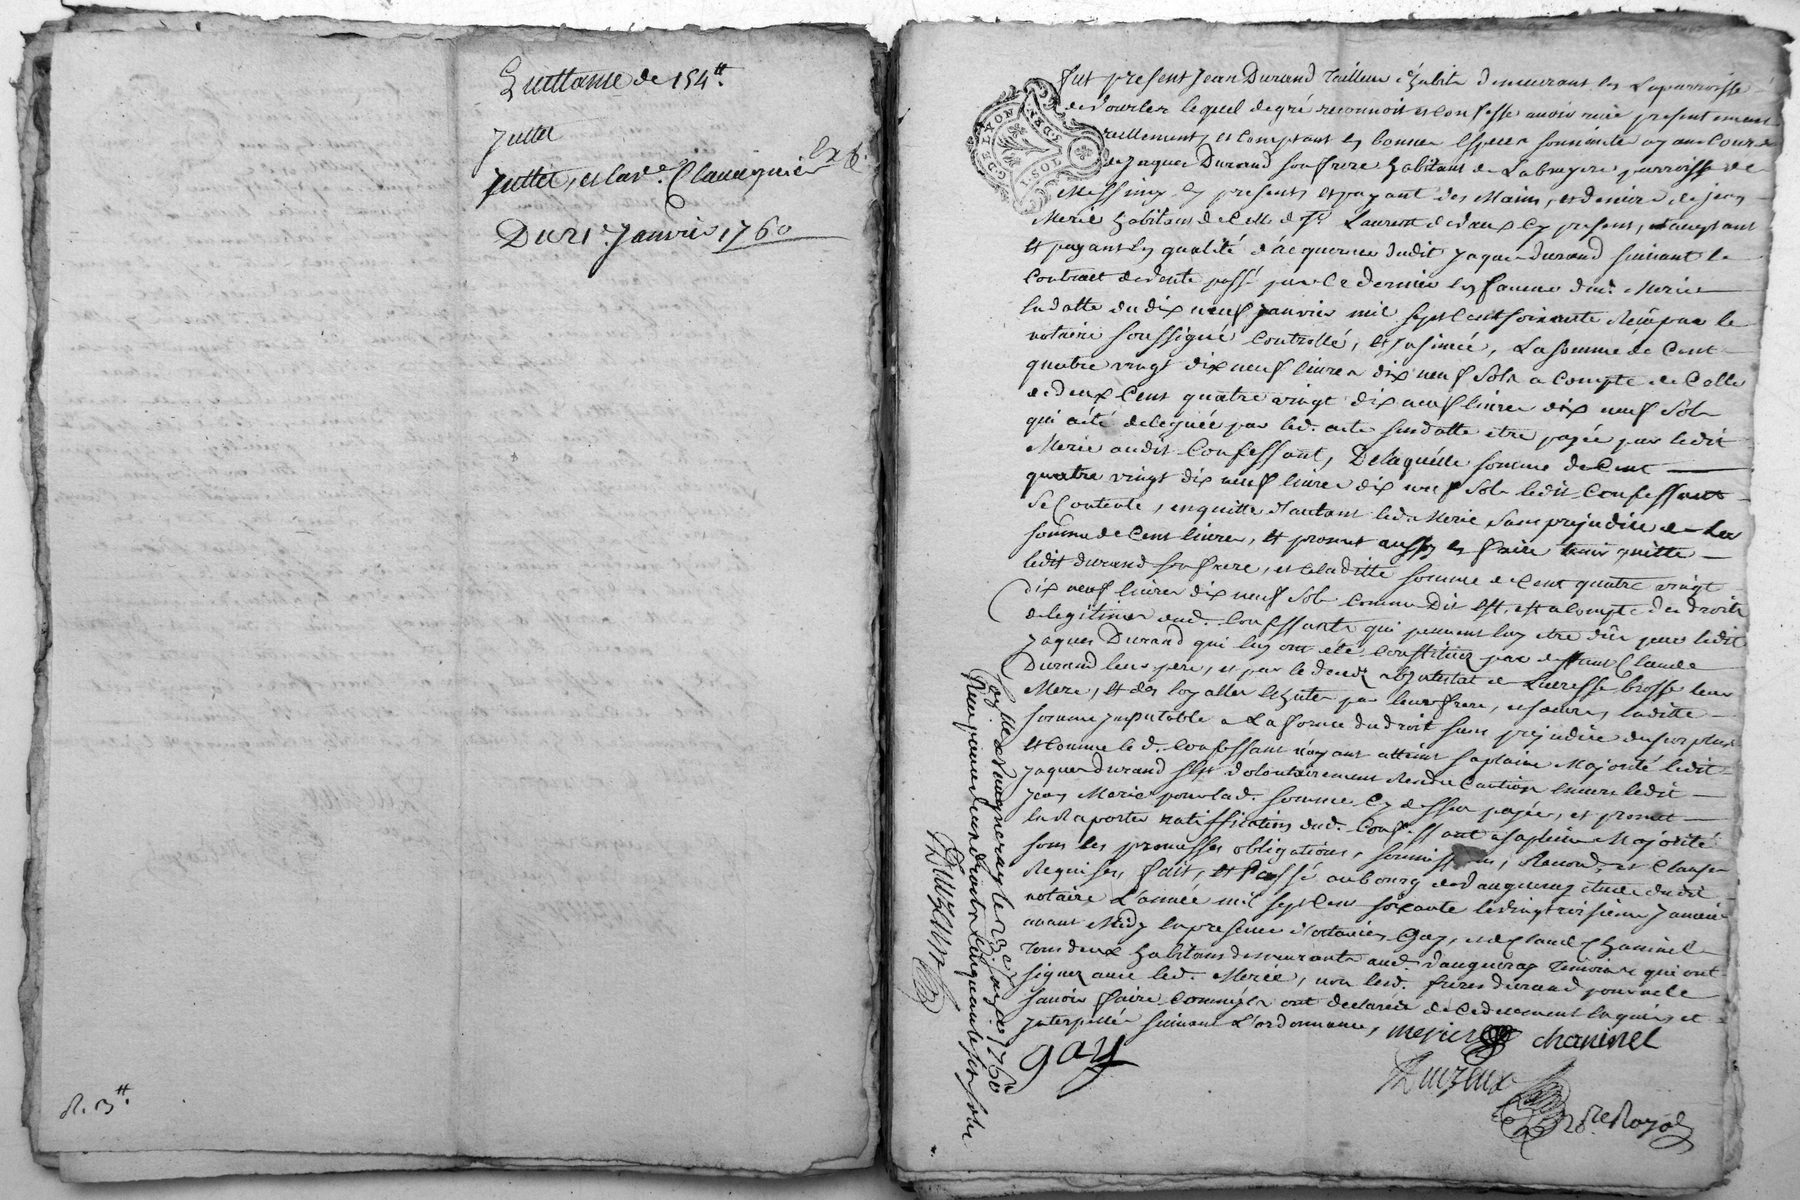 Quittance de 154tt.
Juttet
Juttet, et la ve. Clavagnier
Du 21e. Janvier 1760
R. 3tt.
G. DE LYON
I. SOL
DEN.
Fut present Jean Durand tailleur d'habits demeurant en la parroisse
de lequel de gré reconnoit et confesse avoir reçu presentement
reellement, et comptant en bonnes especes sonnantes ayant cours
de Jaques Durand son frere habitant de Labruyere parroisse de
Messimy cy present, et payant des mains, et deniers, de jean
Merié habitant de celle de St. Laurent de Vaux cy present, et acceptant
et payant en qualité d'acquereur dudit Jaques Durand suivant le
Contract de vente passé par ce dernier en faveur dud. Merié
En datte du dix neuf janvier mil sept cent soixante Reçu par le
notaire soussigné Controllé, et insinué, La somme de Cent
quatre vingt dix neuf livres dix neuf sols a compte de Celle
de deux Cent quatre vingt dix neuf livres dix neuf sols
qui a été deleguée par led. acte susdatte etre payée par ledit
Merié audit Confessant, De laquelle somme de Cent
quatre vingt dix neuf livres dix neuf sols ledit Confessant
se Contente, en quitte d'autant led. Merié sans prejudice de les
somme de Cent livres, et promet aussy en faire tenir quitte
ledit durand son frere, et laditte somme de Cent quatre vingt
dix neuf livres dix neuf sols comme dit est, est a compte des droits
de legitimes dud. Confessant qui peuvent luy etre dûs par ledit
Jaques Durand qui luy ont été Constitués par deffunt Claude
Durand leur pere, et par le deceds abjntestat de brosse leur
Mere, et de par leurs frere, et soeurs, laditte
somme jmputable a La forme du droit sans prejudice du surplus
Et Comme led. Confessant n'ayant atteint sa plaine Majorité ledit
Jaques Durand s'est volontairement Rendu Caution envers ledit
Jean Merié pour lad. somme Cy dessus payée, et promet
En Raporter ratiffication dud. Confessant a sa pleine Majorité
sous les promesses obligations, soumissions, Renonc, et Clauses
Requises, fait, et Passé au bourg de Vaugneray etude dudit
notaire L'année mil sept cent soixante le vingt troisieme Janvier
avant Midy En presence d'octavien Gay, et de Claude Chaminel
tous deux habitans demeurants aud. Vaugneray temoins qui ont
signez avec led. Merié, non lesd. freres durand pour ne le
savoir faire Comme ils ont declaréz de ce deuement enquis et
jnterpellé suivant L'ordonnance,
merie chaninel
gay
Vaugneray le 23e. janvier 1760
Reçu